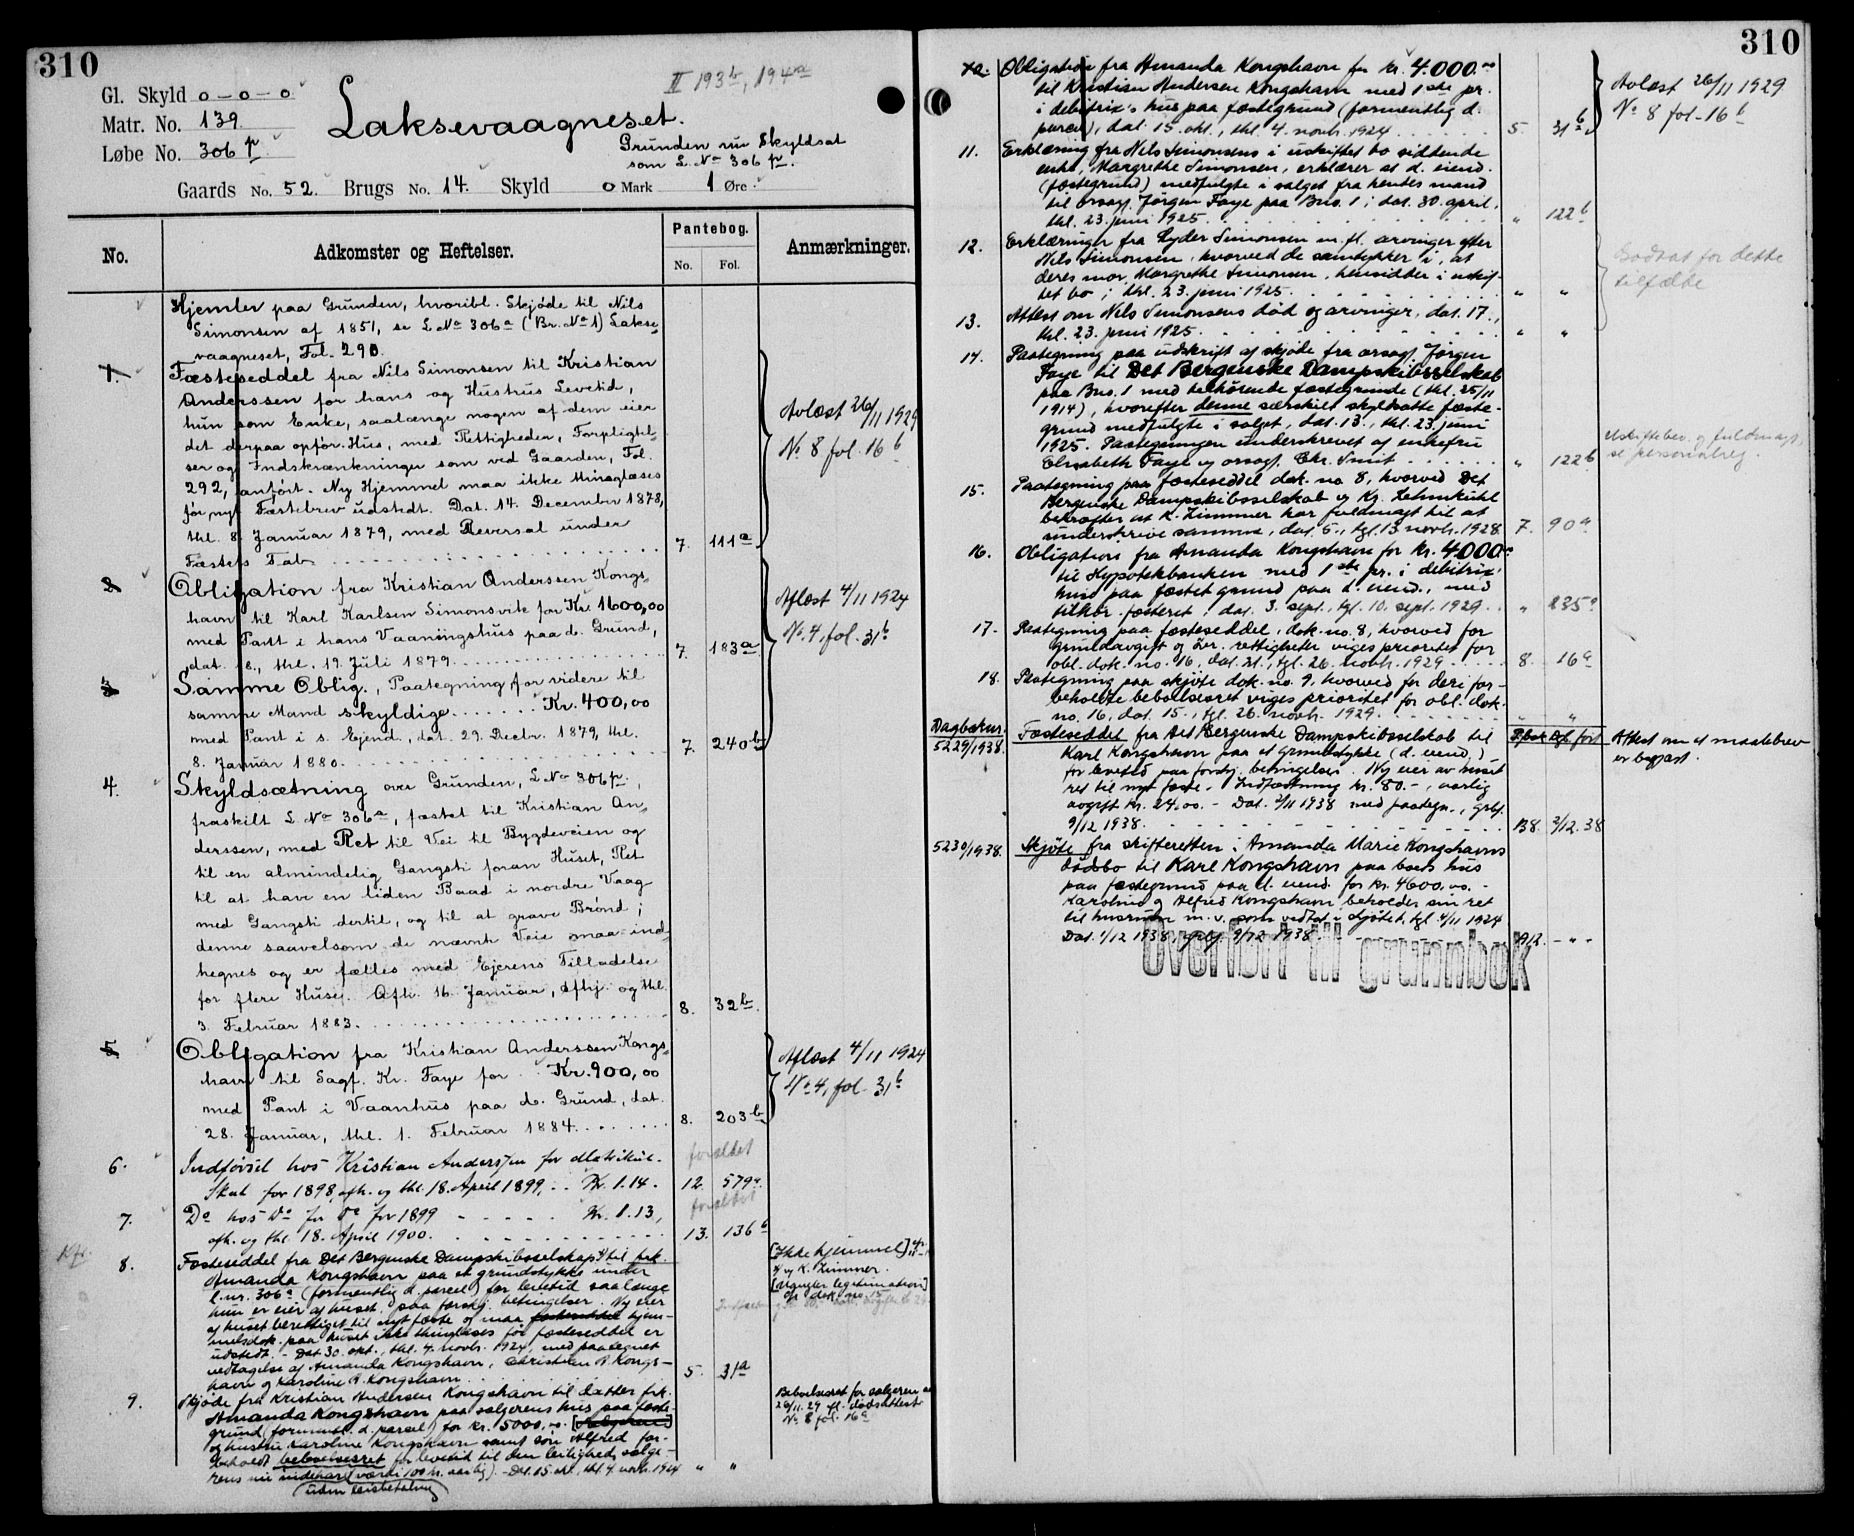 310
Gl. Skyld 0-0-0
Matr. No. 139.
Løbe No. 306 p.
II 193b, 194a
Laksevaagneset.
Grunden nu Skyldsat
som L No 306 p.
Gaards No. 52. Brugs No. 14. Skyld 0 Mark 1 Øre
No.
Adkomster og Heftelser.
Pantebog.
No. Fol.
Anmærkninger.
Hjemler paa Grunden, hvoribl. Skjøde til Nils
Simonsen af 1851, se L No 306a (Br. No 1) Lakse-
vaagneset, Fol. 290.
1. Fæsteseddel fra Nils Simonsen til Kristian
Anderssen for hans og Hustrus Levetid,
hun som Enke, saalænge nogen af dem eier
det derpaa opför. Hus, med Rettigheder, Forpligtel-
ser og Indskrænkninger som ved Gaarden, Fol.
292, anfört. Ny Hjemmel maa ikke thinglæses
för nyt Fæstebrev udstedt. Dat. 14. December 1878,
thl. 8. Januar 1879, med Reversal under
Fæstets Tab 7. 111a
Avlæst 26/11 1929
No 8 fol. 16b
2. Obligation fra Kristian Anderssen Kongs-
havn til Karl Karlsen Simonsvik for Kr. 1600,00
med Pant i hans Vaaningshus paa d. Grund,
dat. 18., thl. 19. Juli 1879 7. 183a
Aflæst 4/11 1924
No. 4, fol. 31b
3. Samme Oblig., Paategning for videre til
samme Mand skyldige Kr. 400,00
med Pant i s. Ejend., dat. 29. Decbr. 1879, thl.
8. Januar 1880. 7. 240b
4. Skyldsætning over Grunden, L No 306p.,
fraskilt L No 306a, fæstet til Kristian An-
derssen, med Ret til Vei til Bygdeveien og
til en almindelig Gangsti foran Huset, Ret
til at have en liden Baad i nordre Vaag
med Gangsti dertil, og til at grave Brönd;
denne saavelsom de nævnte Veie maa ind-
hegnes og er fælles med Ejerens Tilladelse
for flere Huse. Afh. 16. Januar, afhj. og thl.
3. Februar 1883. 8. 32b
5. Obligation fra Kristian Anderssen Kongs-
havn til Sagf. Kr. Faye for Kr. 900,00
med Pant i Vaanhus paa d. Grund, dat.
28. Januar, thl. 1. Februar 1884. 8. 203b
Aflæst 4/11 1924
No 4, fol. 31b
forældet
6. Indførsel hos Kristian Anderssen for Matrikul-
Skat for 1898, afh. og thl. 18. April 1899, Kr. 1.14. 12. 579a
forældet
7. Do hos Do for Do for 1899 Kr. 1.13,
afh. og thl. 18. April 1900. 13. 136b
8. Fæsteseddel fra Det Bergenske Dampskibsselskap til frk.
Amanda Kongshavn paa et grundstykke under
l.nr. 306a (formentlig d. parcel) for levetid saalænge
hun er eier af huset, paa forskj. betingelser. Ny eier
af huset berettiget til nyt fæste og maa hjem-
melsdok. paa huset ikke thinglæses før fæsteseddel er
udstedt. - Dat. 30. okt., thl. 4. novbr. 1924, med paategnet
vedtagelse af Amanda Kongshavn, Christian A. Kongs-
havn og Karoline A. Kongshavn 5. 31a
[Ikke hjemmel]
K. Zimmer.
[Mangler legitimation]
cfr. dok. no. 15
9. Skjøde fra Kristian Andersen Kongshavn til datter frk.
Amanda Kongshavn paa sælgerens hus paa fæste-
grund (forment. d. parcel) for kr. 5000,00.
og hustru Karoline Kongshavn samt søn Alfred for-
beholdt beboelsesret for levetid til den leilighed, sælge-
rens nu indehar (værdi 100 kr. aarlig). - Dat. 15. okt., thl. 4. novbr. 1924 " "
(uden leiebetaling)
Beboelsesret for sælgeren
26/11. 29 fl. dødsattest
No 8 fol. 16a
310
10. Obligation fra Amanda Kongshavn for kr. 4.000.00
til Kristian Andersen Kongshavn med 1ste pr.
i debitrix's hus paa fæstegrund (formentlig d.
parcel), dat. 15. okt., thl. 4. novbr. 1924 5. 31b
Avlæst 26/11 1929
No 8 fol. 16b
11. Erklæring fra Nils Simonsens i uskiftet bo siddende
enke, Margrethe Simonsen, erklærer at d. eiend.
(fæstegrund) medfulgte i salget fra hendes mand
til orsagf. Jørgen Faye paa Bno. 1; dat. 30. april,
thl. 23. juni 1925. " 122b
12. Erklæringer fra Lyder Simonsen m. fl. arvinger efter
Nils Simonsen, hvorved de samtykker i, at
deres mor, Margrethe Simonsen, hensidder i uskif-
tet bo; thl. 23. juni 1925. " "
Godtat for dette
tilfælde
13. Attest om Nils Simonsens død og arvinger, dat. 17.,
thl. 23. juni 1925. " "
14. Paategning paa udskrift af skjøde fra orsagf. Jørgen
Faye til Det Bergenske Dampskibsselskab
paa Bno. 1 med tilhørende fæstegrunde (thl. 25/11
1914), hvorefter denne særskilt skyldsatte fæste-
grund medfulgte i salget, dat. 13., thl. 23. juni
1925. Paategningen underskrevet af enkefru
Elisabeth Faye og orsagf. Chr. Smit " 122b
Uskiftebev. og fuldmagt,
se personalreg.
15. Paategning paa fæsteseddel dok. no 8, hvorved Det
Bergenske Dampskibsselskab og Kr. Lehmkuhl
bekræfter at K. Zimmer har fuldmagt til at
underskrive samme, dat. 5., tgl. 13 novbr. 1928. 7. 90a
16. Obligation fra Amanda Kongshavn for kr. 4000.-
til Hypotekbanken med 1ste pr. i debitrix'
hus paa fæstet grund paa d. eiend., med
tilhør. fæsteret; dat. 3. sept., tgl. 10. sept. 1929. " 235a
17. Paategning paa fæsteseddel, dok. no. 8, hvorved for
grundavgift og øvr. rettigheter viges prioritet for
obl. dok. no. 16, dat. 21., tgl. 26. novbr. 1929 8. 16a
18. Paategning paa skjøte dok. no. 9, hvorved for deri for-
beholdte beboelsesret viges prioritet for obl. dok.
no. 16, dat. 15., tgl. 26. novbr. 1929. " "
Dagboknr.
5229/1938. Festeseddel fra Det Bergenske Dampskibsselskab til
Karl Kongshavn paa et grundstykke (d. eiend.)
for levetid paa forskj. betingelser. Ny eier av huset
ret til nyt feste. Indfæstning kr. 80.-, aarlig
avgift kr. 24.00. - Dat. 2/11 1938 med paategn., grbf.
9/12 1938. B8. 2/12. 38
Attest om at maalebrev
er begjært.
5230/1938. Skjøte fra skifteretten i Amanda Marie Kongshavns
dødsbo til Karl Kongshavn paa boets hus
paa fæstegrund paa d. eiend. for kr. 4600,00. -
Karoline og Alfred Kongshavn beholder sin ret
til husrum m. v. som vedtat i skjøtet, tgl. 4/11 1924
Dat. 1/12 1938, grbf. 9/12 1938
Overført til grunnbok